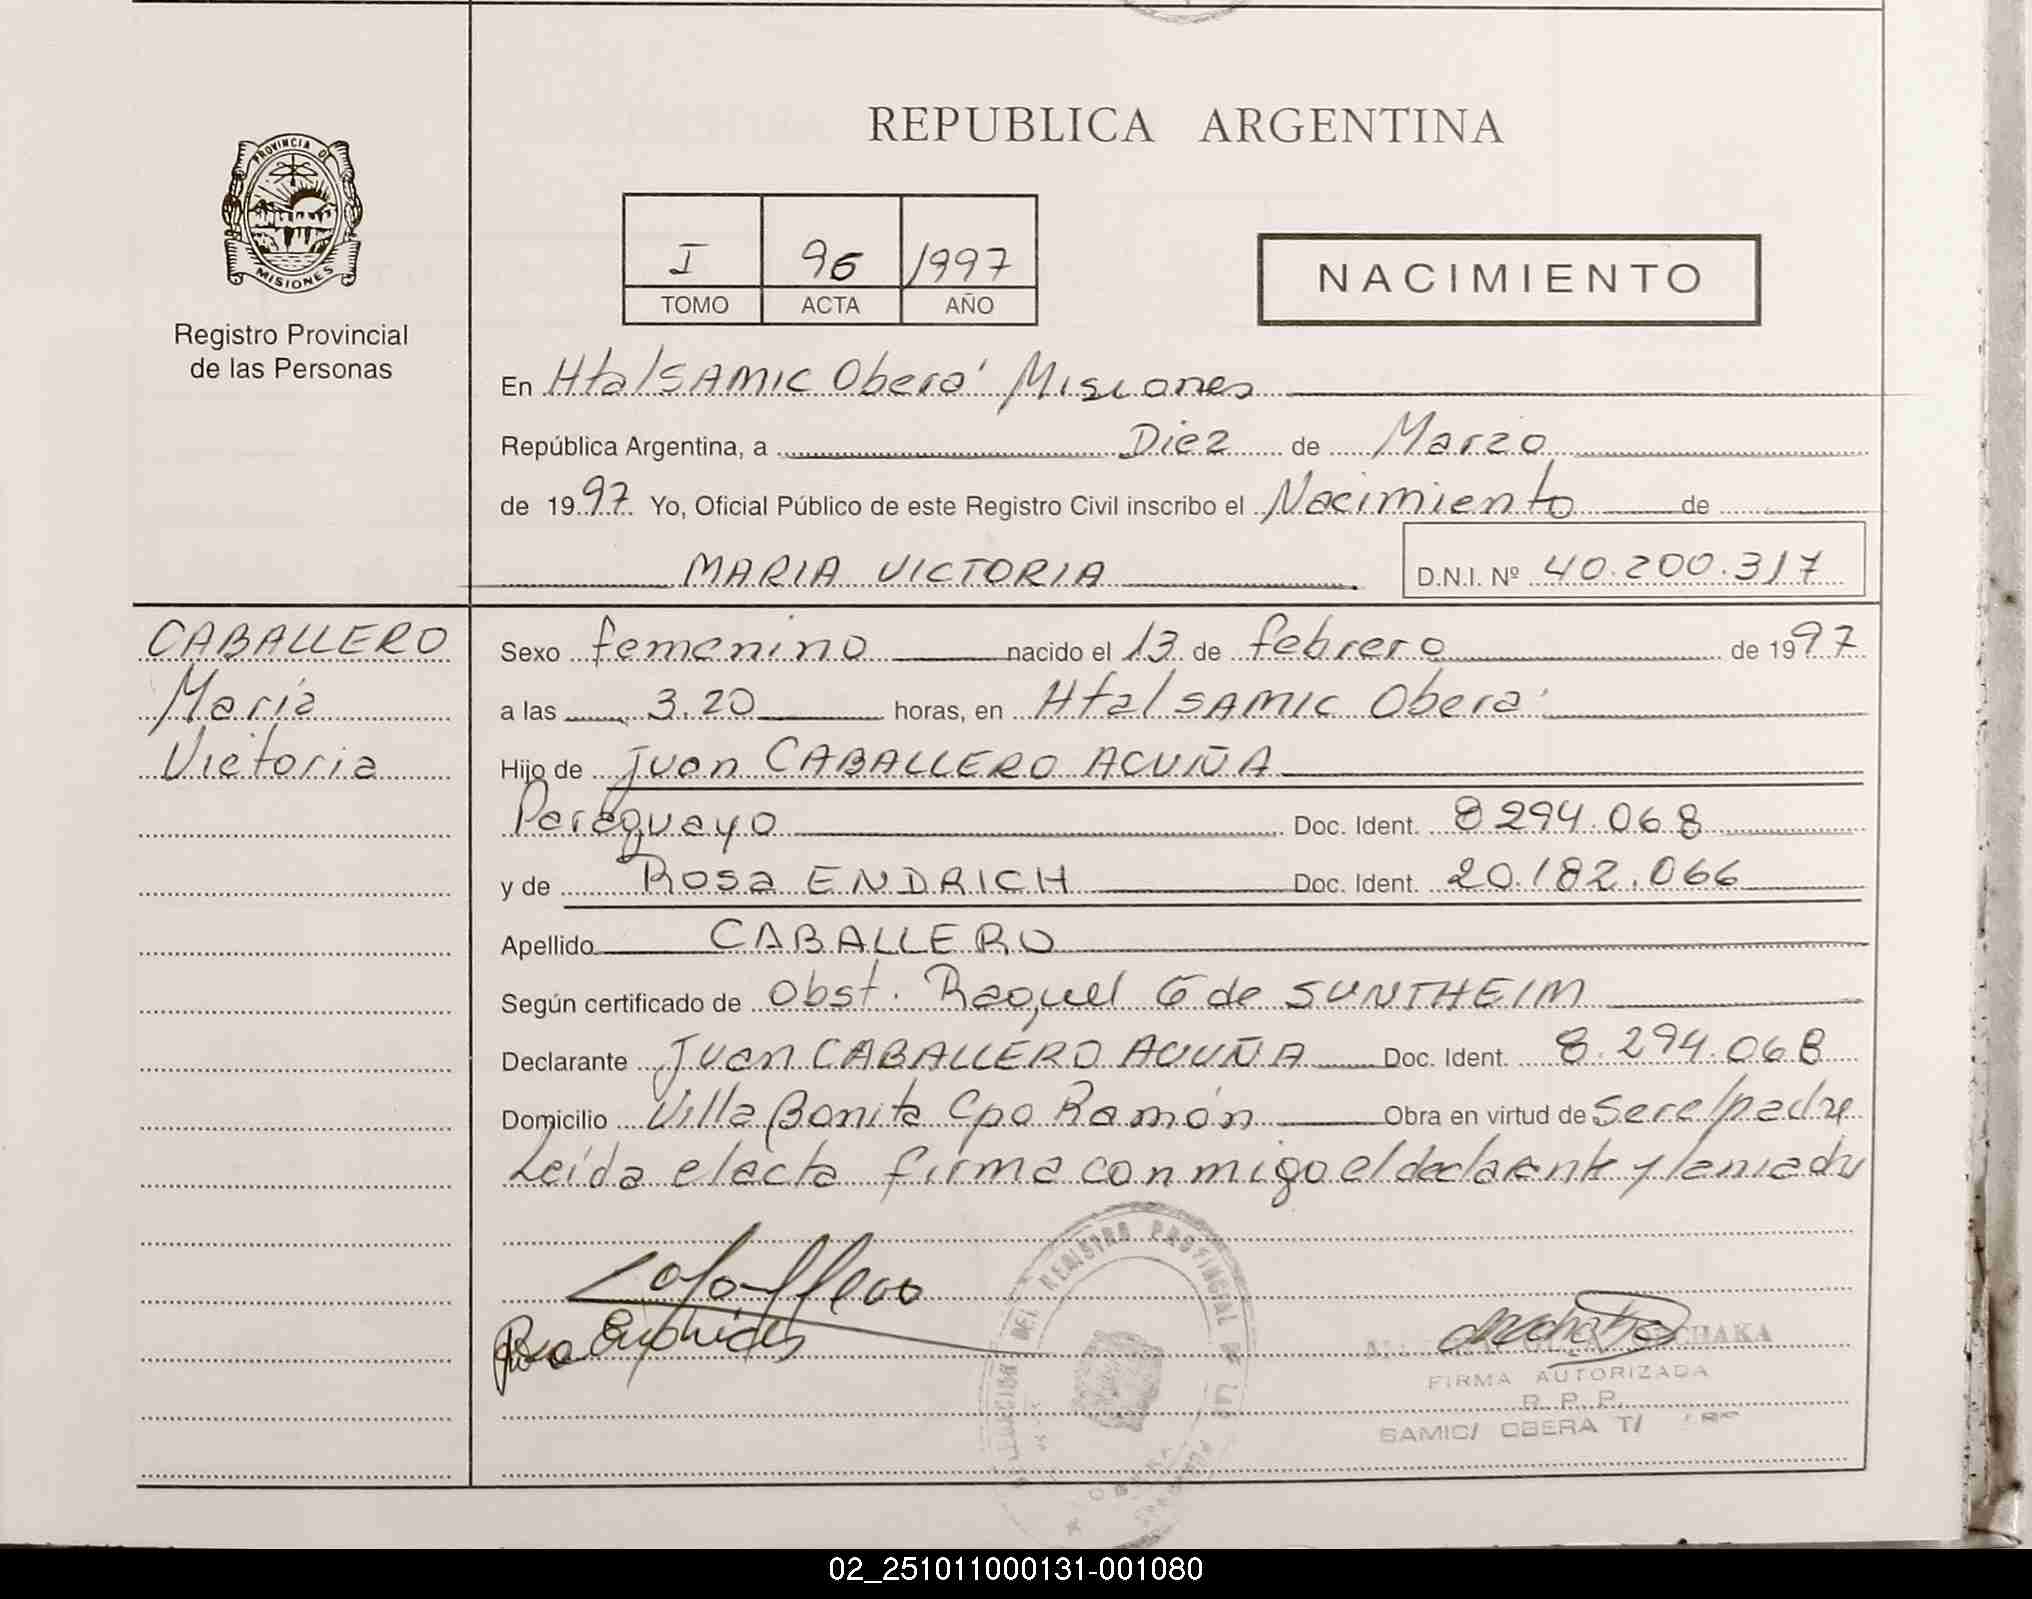 PROVINCIA DE
MISIONES
Registro Provincial
de las Personas
REPUBLICA ARGENTINA
I 96 1997
TOMO ACTA AÑO
NACIMIENTO
En Htal SAMIC Oberá Misiones
República Argentina, a Diez de Marzo
de 1997 Yo, Oficial Público de este Registro Civil inscribo el Nacimiento de
MARIA VICTORIA D.N.I. Nº 40.200.317
CABALLERO
María
Victoria
Sexo femenino nacido el 13 de febrero de 1997
a las 3.20 horas, en Htal SAMIC Oberá
Hijo de Juan CABALLERO ACUÑA
Paraguayo Doc. Ident. 8294.068
y de Rosa ENDRICH Doc. Ident. 20.182.066
Apellido CABALLERO
Según certificado de Obst. Raquel G de SUNTHEIM
Declarante Juan CABALLERO ACUÑA Doc. Ident. 8.294.068
Domicilio Villa Bonita Cpo Ramón Obra en virtud de ser el padre
Leída el acta firma conmigo el declarante y la madre
Caballero
Rosa
DEL REGISTRO PROVINCIAL DE
FIRMA AUTORIZADA
R. P. P.
SAMIC/ OBERA T/
02_251011000131-001080